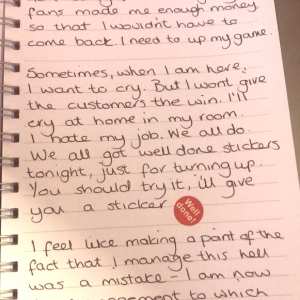 fans made me enough money
so that I wouldn't have to
come back. I need to up my game.
Sometimes, when I am here,
I want to cry. But I wont give
the customers the win. I'll
cry at home in my room.
I hate my job. We all do.
We all got well done stickers
tonight, just for turning up.
You should try it, i'll give
you a sticker.
Well done!
I feel like making a point of the
fact that I manage this hell
was a mistake - I am now
to which